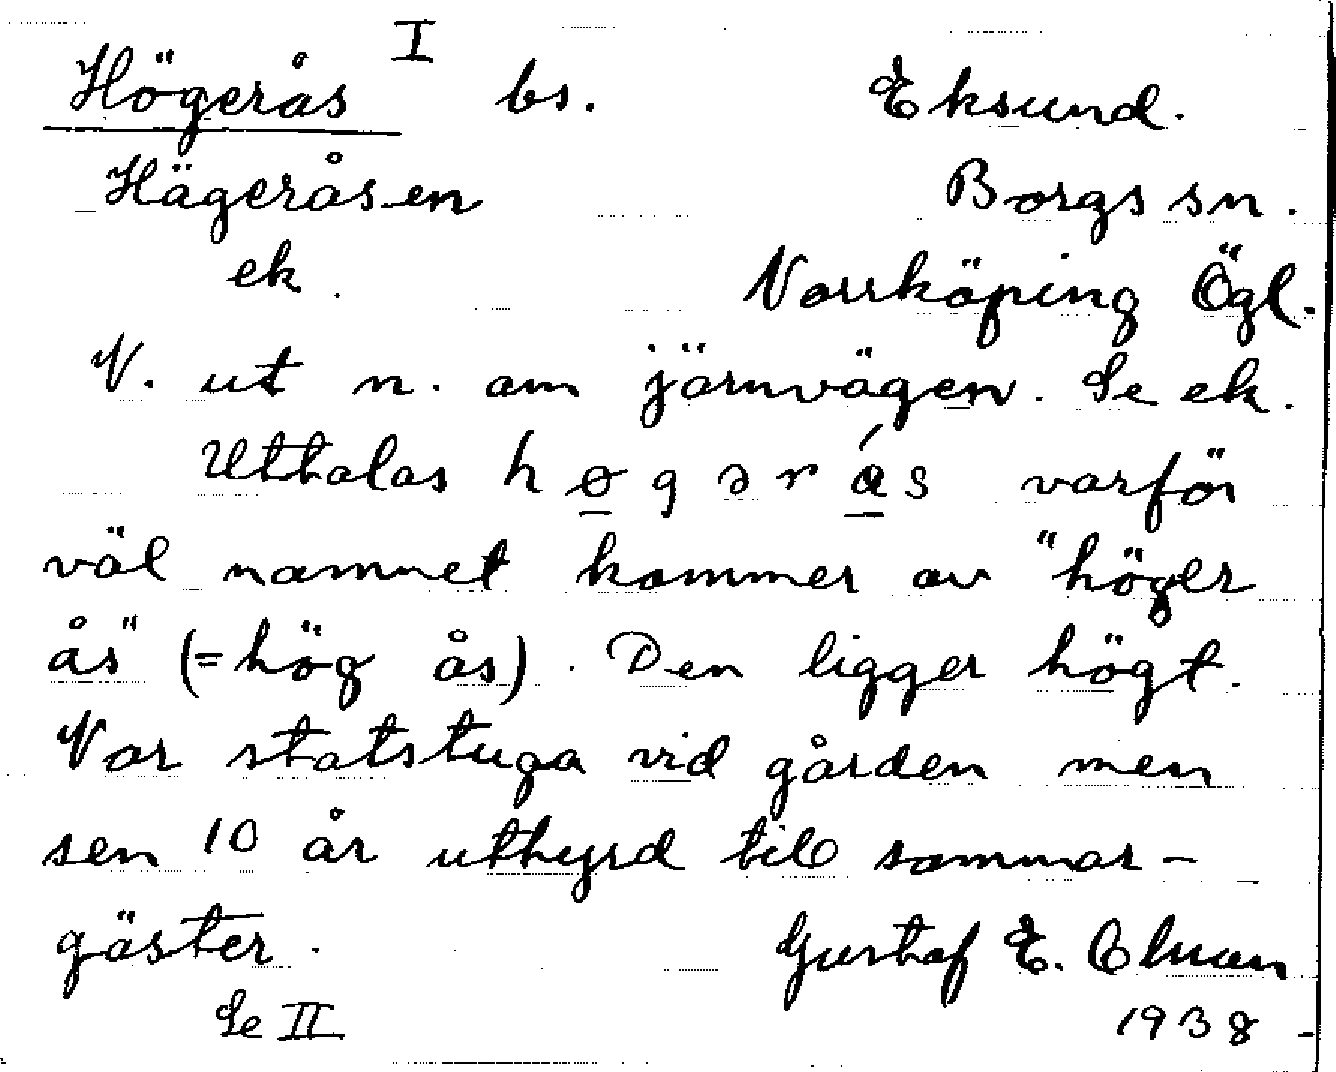 I
Högerås bs. Eksund.
Hägeråsen Borgs sn.
ek. Norrköping Ögl.
V. ut n. om järnvägen. Se ek.
Uttalas h ø g ə r á s varför
väl namnet kommer av "höger
ås" (=hög ås). Den ligger högt.
Var statstuga vid gården men
sen 10 år uthyrd till sommar-
gäster. Gustaf E.
Se II 1938